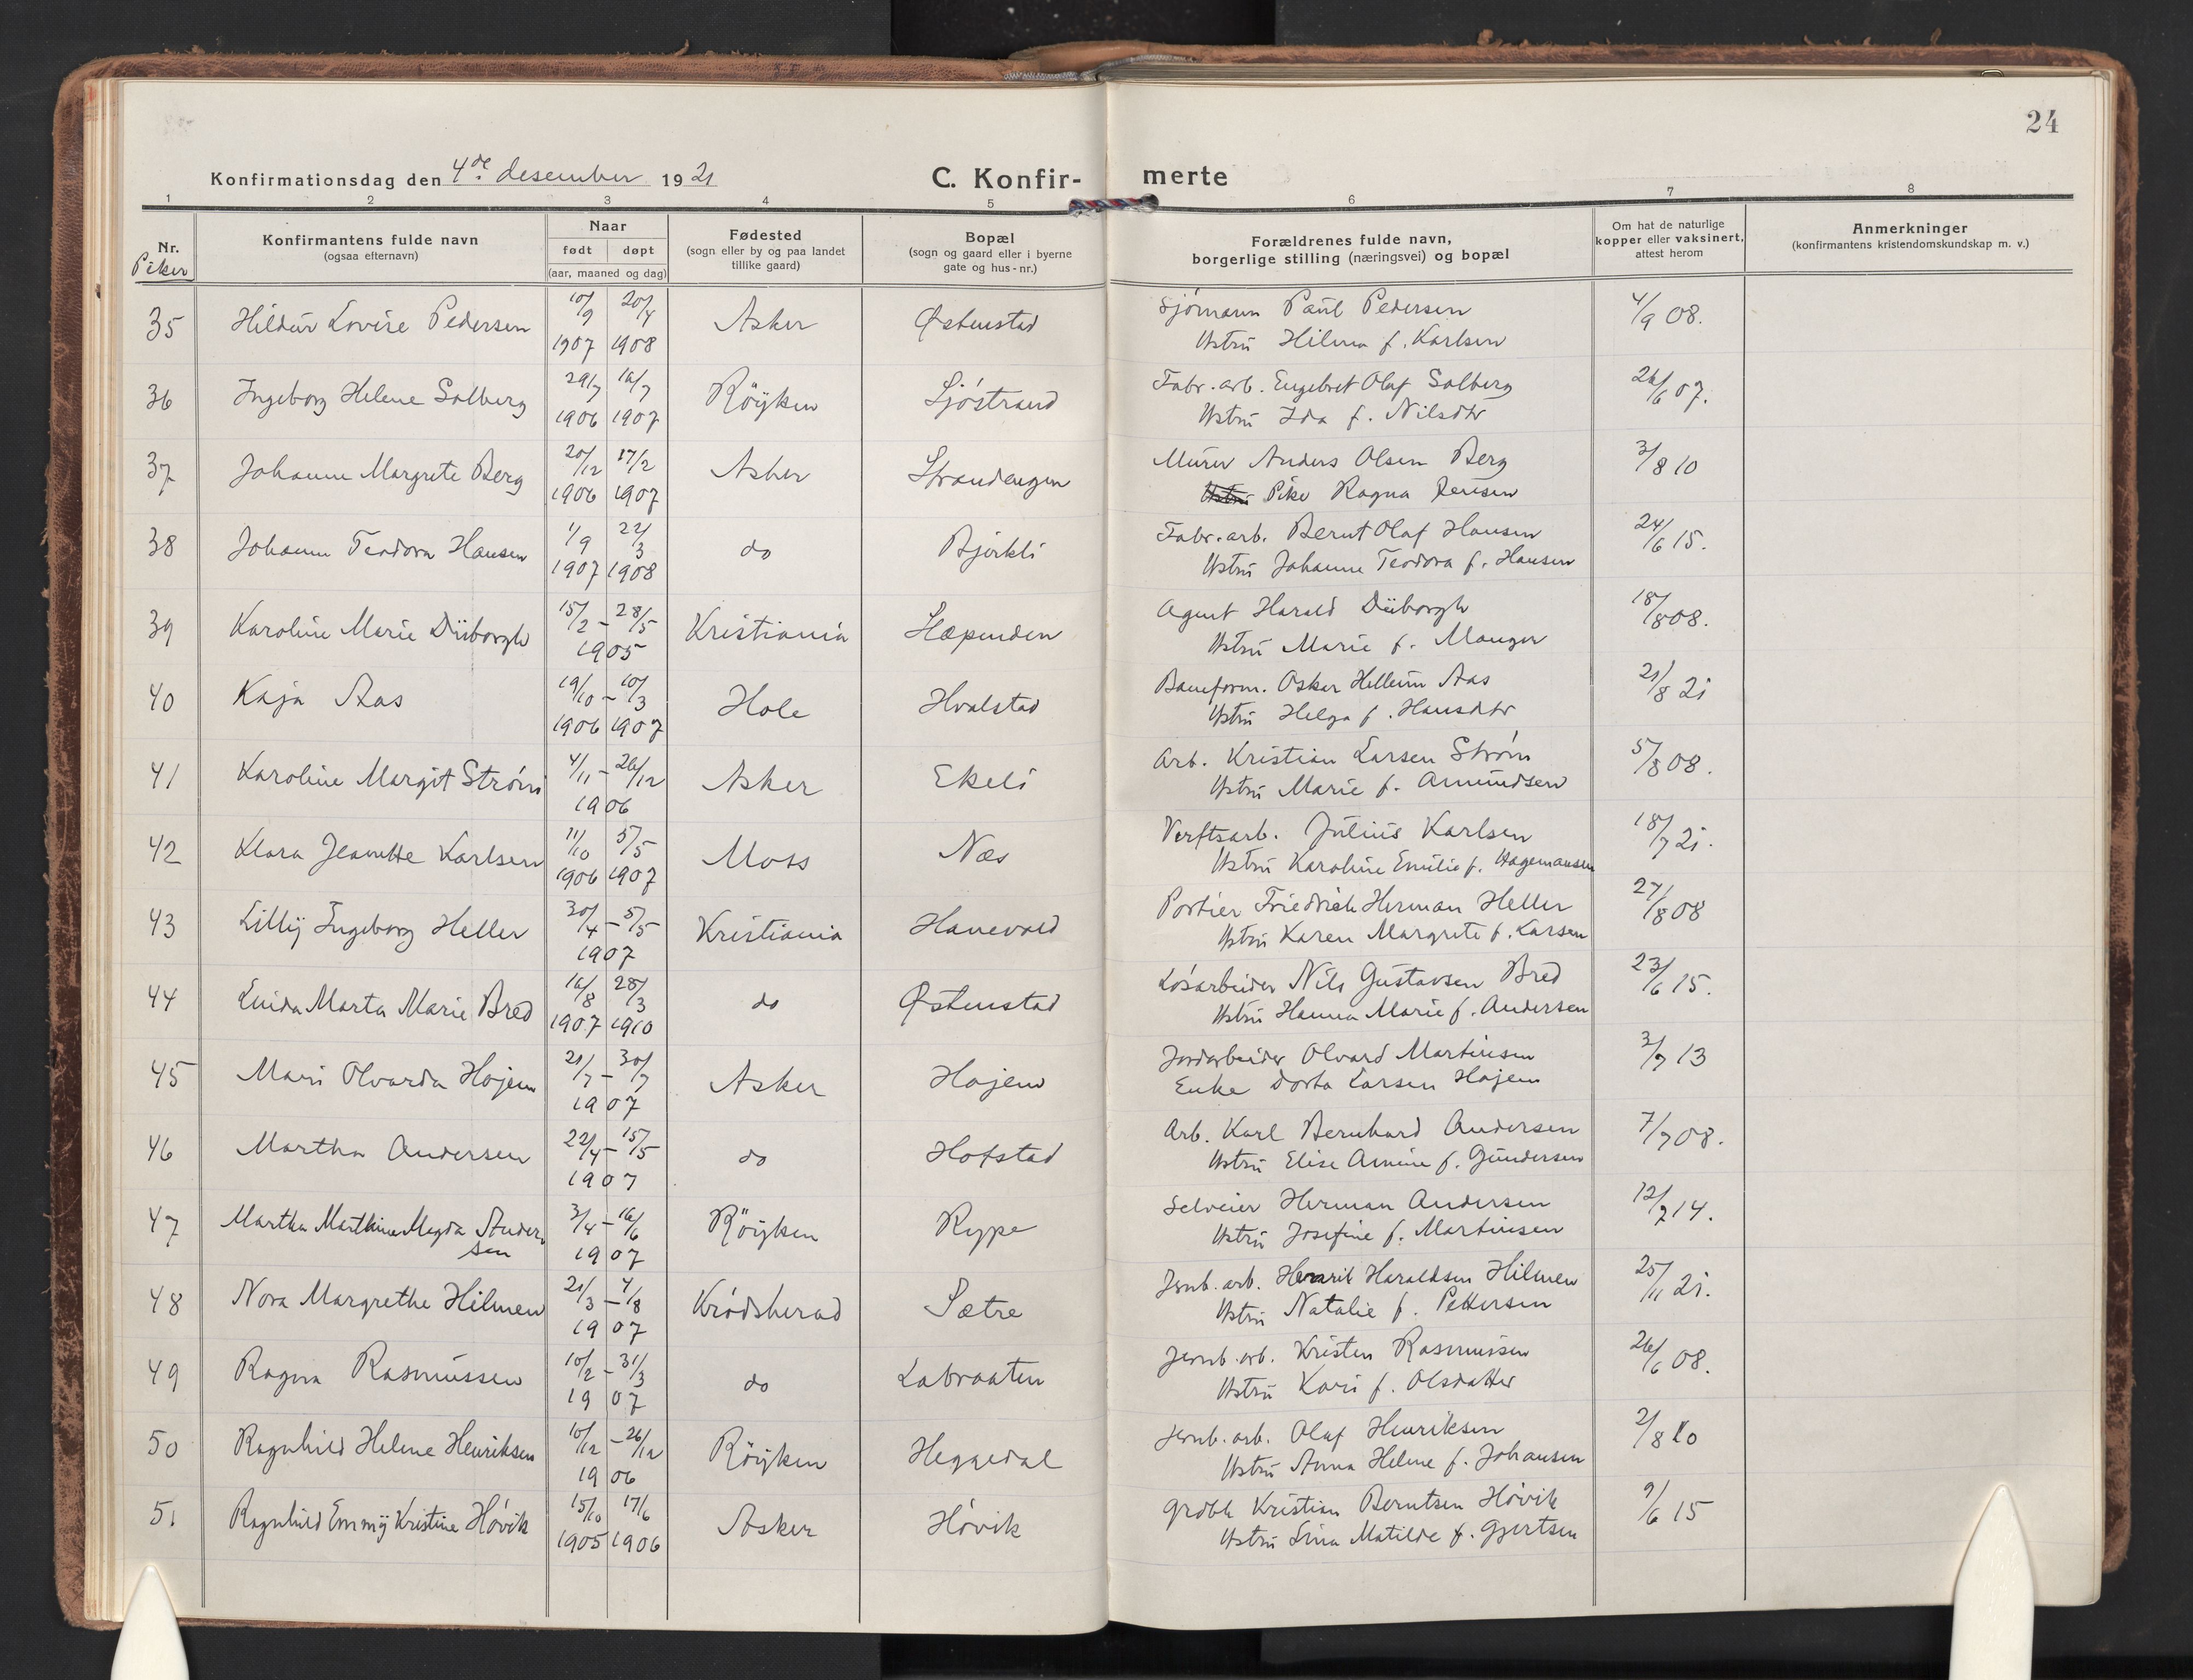 24
Konfirmationsdag den 4de desember 1921
C. Konfir- merte
1 2 3 4 5 6 7 8
Nr. Piker
Konfirmantens fulde navn
(ogsaa efternavn)
Naar
født døpt
(aar, maaned og dag)
Fødested
(sogn eller by og paa landet
tillike gaard)
Bopæl
(sogn og gaard eller i byerne
gate og hus-nr.)
Forældrenes fulde navn,
borgerlige stilling (næringsvei) og bopæl
Om hat de naturlige
kopper eller vaksinert,
attest herom
Anmerkninger
(konfirmantens kristendomskundskap m. v.)
35 Hildur Lovise Pedersen 10/9 1907 20/4 1908 Asker Østenstad Sjömann Paul Pedersen 4/9 08.
Hstru Hilma f. Karlsen
36 Ingeborg Helene Solberg 29/7 1906 16/7 1907 Röyken Sjöstrand Fabr. arb. Engebret Olaf Solberg 26/6 07.
Hstru Ida f. Nilsdtr
37 Johanne Margrete Berg 20/12 1906 17/2 1907 Asker Strandengen Murer Anders Olsen Berg 3/8 10
Pike Ragna Jensen
38 Johanne Teodora Hansen 1/9 1907 22/3 1908 do Bjørkli Fabr. arb. Bernt Olaf Hansen 24/6 15.
Hstru Johanne Teodora f. Hansen
39 Karoline Marie Düborgh 15/2 - 28/5 1905 Kristiania Hæpenden Agent Harald Düborgh 18/8 08.
Hstru Marie f. Manger
40 Kaja Aas 19/10 - 10/3 1906 1907 Hole Hvalstad Baneform. Oskar Hellum Aas 21/8 21
Hstru Helga f. Hansdtr
41 Karoline Margit Strøm 4/11 - 26/12 1906 Asker Ekeli Arb. Kristian Larsen Strøm 5/8 08.
Hstru Marie f. Amundsen
42 Klara Jeanette Karlsen 11/10 1906 5/5 1907 Moss Næs Verftsarb. Julius Karlsen 18/7 21.
Hstru Karoline Emilie f. Hagemansen
43 Lilly Ingeborg Heller 30/4 - 5/5 1907 Kristiania Hanevold Portier Friedrich Herman Heller 27/8 08
Hstru Karen Margrete f. Larsen
44 Marta Marie Bred 16/8 1907 28/3 1910 do Østenstad Løsarbeider Nils Gustavsen Bred 23/6 15.
Hstru Hanna Marie f. Andersen
45 Mari Olvarda Højem 21/7 - 30/7 1907 Asker Højem Jordarbeider Olvard Martinsen 3/7 13
Enke Dorta Larsen Højem
46 Martha Andersen 22/4 - 15/5 1907 do Hofstad Arb. Karl Bernhard Andersen 7/7 08.
Hstru Elise Amine f. Gundersen
47 Martha Marthine Magda Ander-
sen 3/4 - 16/6 1907 Röyken Rype Selveier Herman Andersen 12/7 14.
Hstru Josefine f. Martinsen
48 Nora Margrethe Hilmen 21/3 - 4/8 1907 Krødsherad Sætre Jernb. arb. Henrik Haraldsen Hilmen 25/11 21.
Hstru Natalie f. Pettersen
49 Ragna Rasmussen 10/2 - 31/3 1907 do Labraaten Jernb. arb. Kristen Rasmussen 26/6 08.
Hstru Kari f. Olsdatter
50 Ragnhild Helene Henriksen 10/12 - 26/12 1906 Röyken Heggedal Jernb. arb. Olaf Henriksen 2/8 10
Hstru Anna Helene f. Johansen
51 Ragnhild Emmy Kristine Høvik 15/10 1905 17/6 1906 Asker Høvik Grdbr Kristian Berntsen Høvik 9/6 15
Hstru Lina Matilde f. Gjertsen